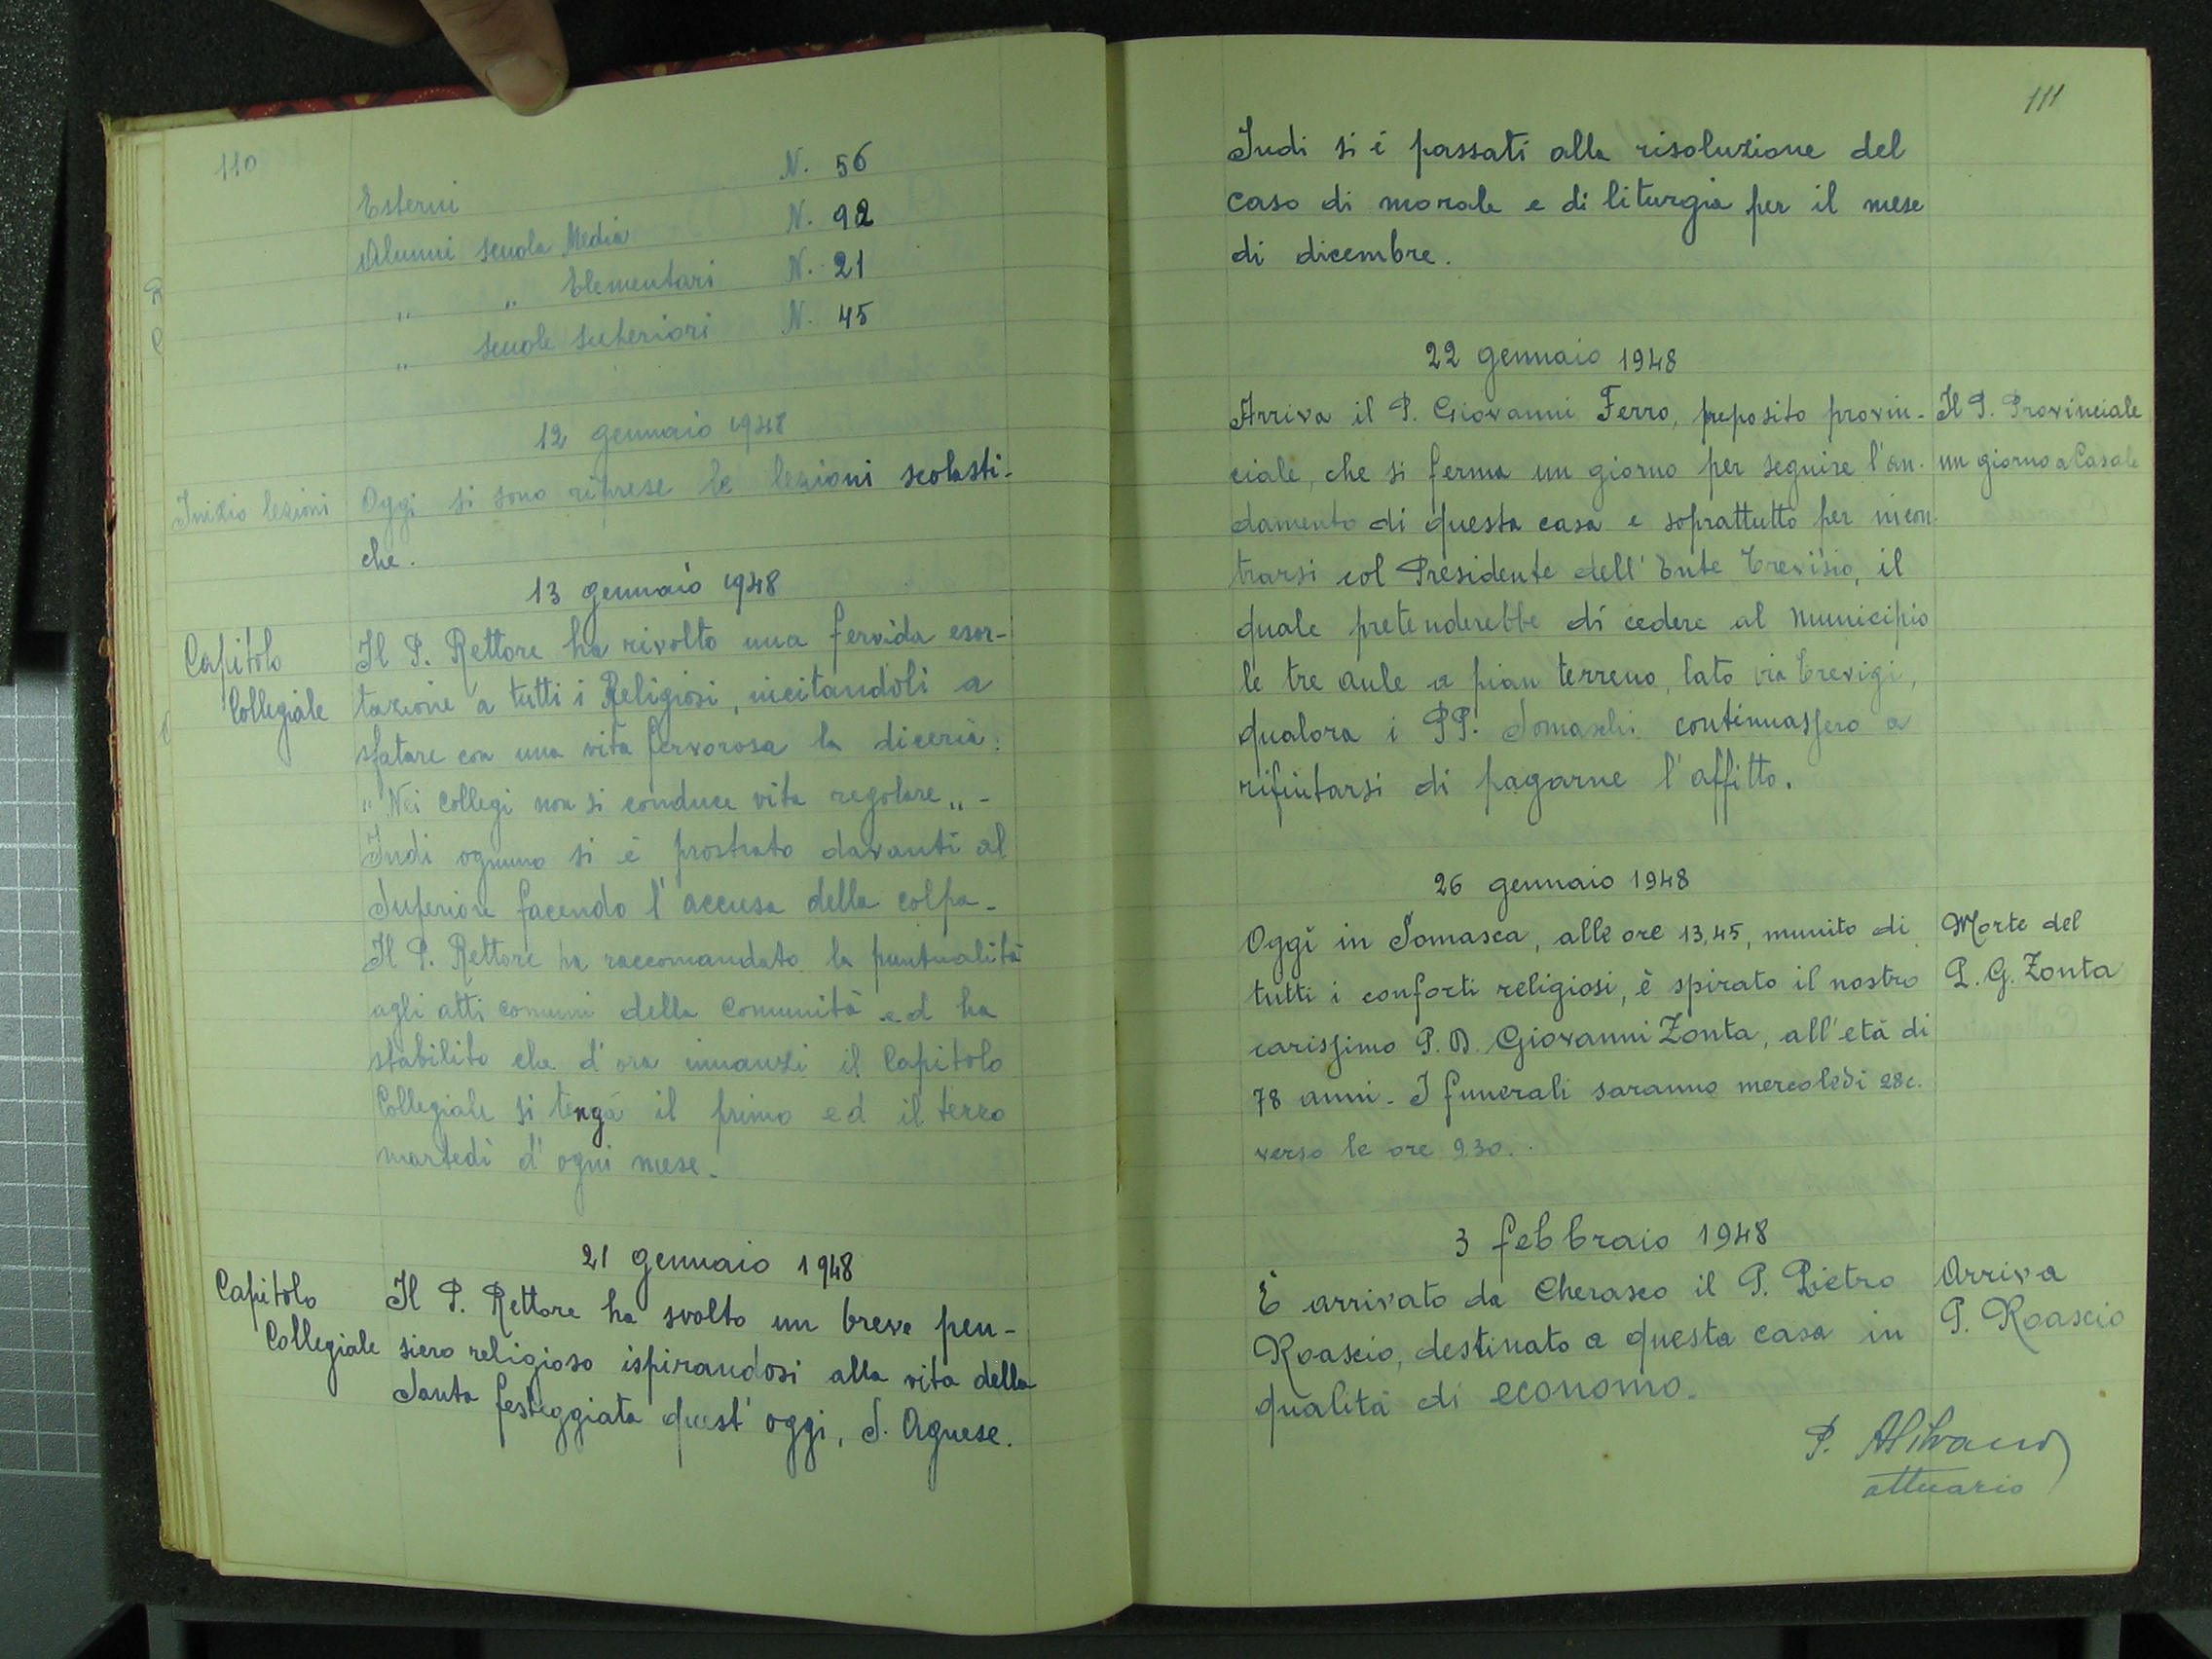 110
Esterni N. 56
Alunni scuola Media N. 92
" " Elementari N. 21
" scuole Superiori N. 45
12 gennaio 1948
Inizio lezioni
Oggi si sono riprese le lezioni scolasti-
che.
13 gennaio 1948
Capitolo
Collegiale
Il P. Rettore ha rivolto una fervida esor-
tazione a tutti i Religiosi, incitandoli a
sfatare con una vita fervorosa la diceria:
"Nei collegi non si conduce vita regolare„ -
Indi ognuno si è prostrato davanti al
Superiore facendo l'accusa della colpa -
Il P. Rettore ha raccomandato la puntualità
agli atti comuni della Comunità ed ha
stabilito che d'ora innanzi il Capitolo
Collegiale si tenga il primo ed il terzo
martedì d'ogni mese -
21 gennaio 1948
Capitolo
Collegiale
Il P. Rettore ha svolto un breve pen-
siero religioso ispirandosi alla vita della
Santa festeggiata quest'oggi, S. Agnese.
111
Indi si è passati alla risoluzione del
caso di morale e di liturgia per il mese
di dicembre.
22 gennaio 1948
Arriva il P. Giovanni Ferro, preposito provin-
ciale, che si ferma un giorno per seguire l'an-
damento di questa casa e soprattutto per incon-
trarsi col Presidente dell'Ente Trevisio, il
quale pretenderebbe di cedere al Municipio
le tre aule a pian terreno, lato via Trevigi,
qualora i PP. Somaschi continuassero a
rifiutarsi di pagarne l'affitto.
Il P. Provinciale
un giorno a Casale
26 gennaio 1948
Oggi in Somasca, alle ore 13,45, munito di
tutti i conforti religiosi, è spirato il nostro
carissimo P. D. Giovanni Zonta, all'età di
78 anni - I funerali saranno mercoledì 28 c.
verso le ore 9.30.
Morte del
P. G. Zonta
3 febbraio 1948
È arrivato da Cherasco il P. Pietro
Roascio, destinato a questa casa in
qualità di economo -
Arriva
P. Roascio
P.
attuario